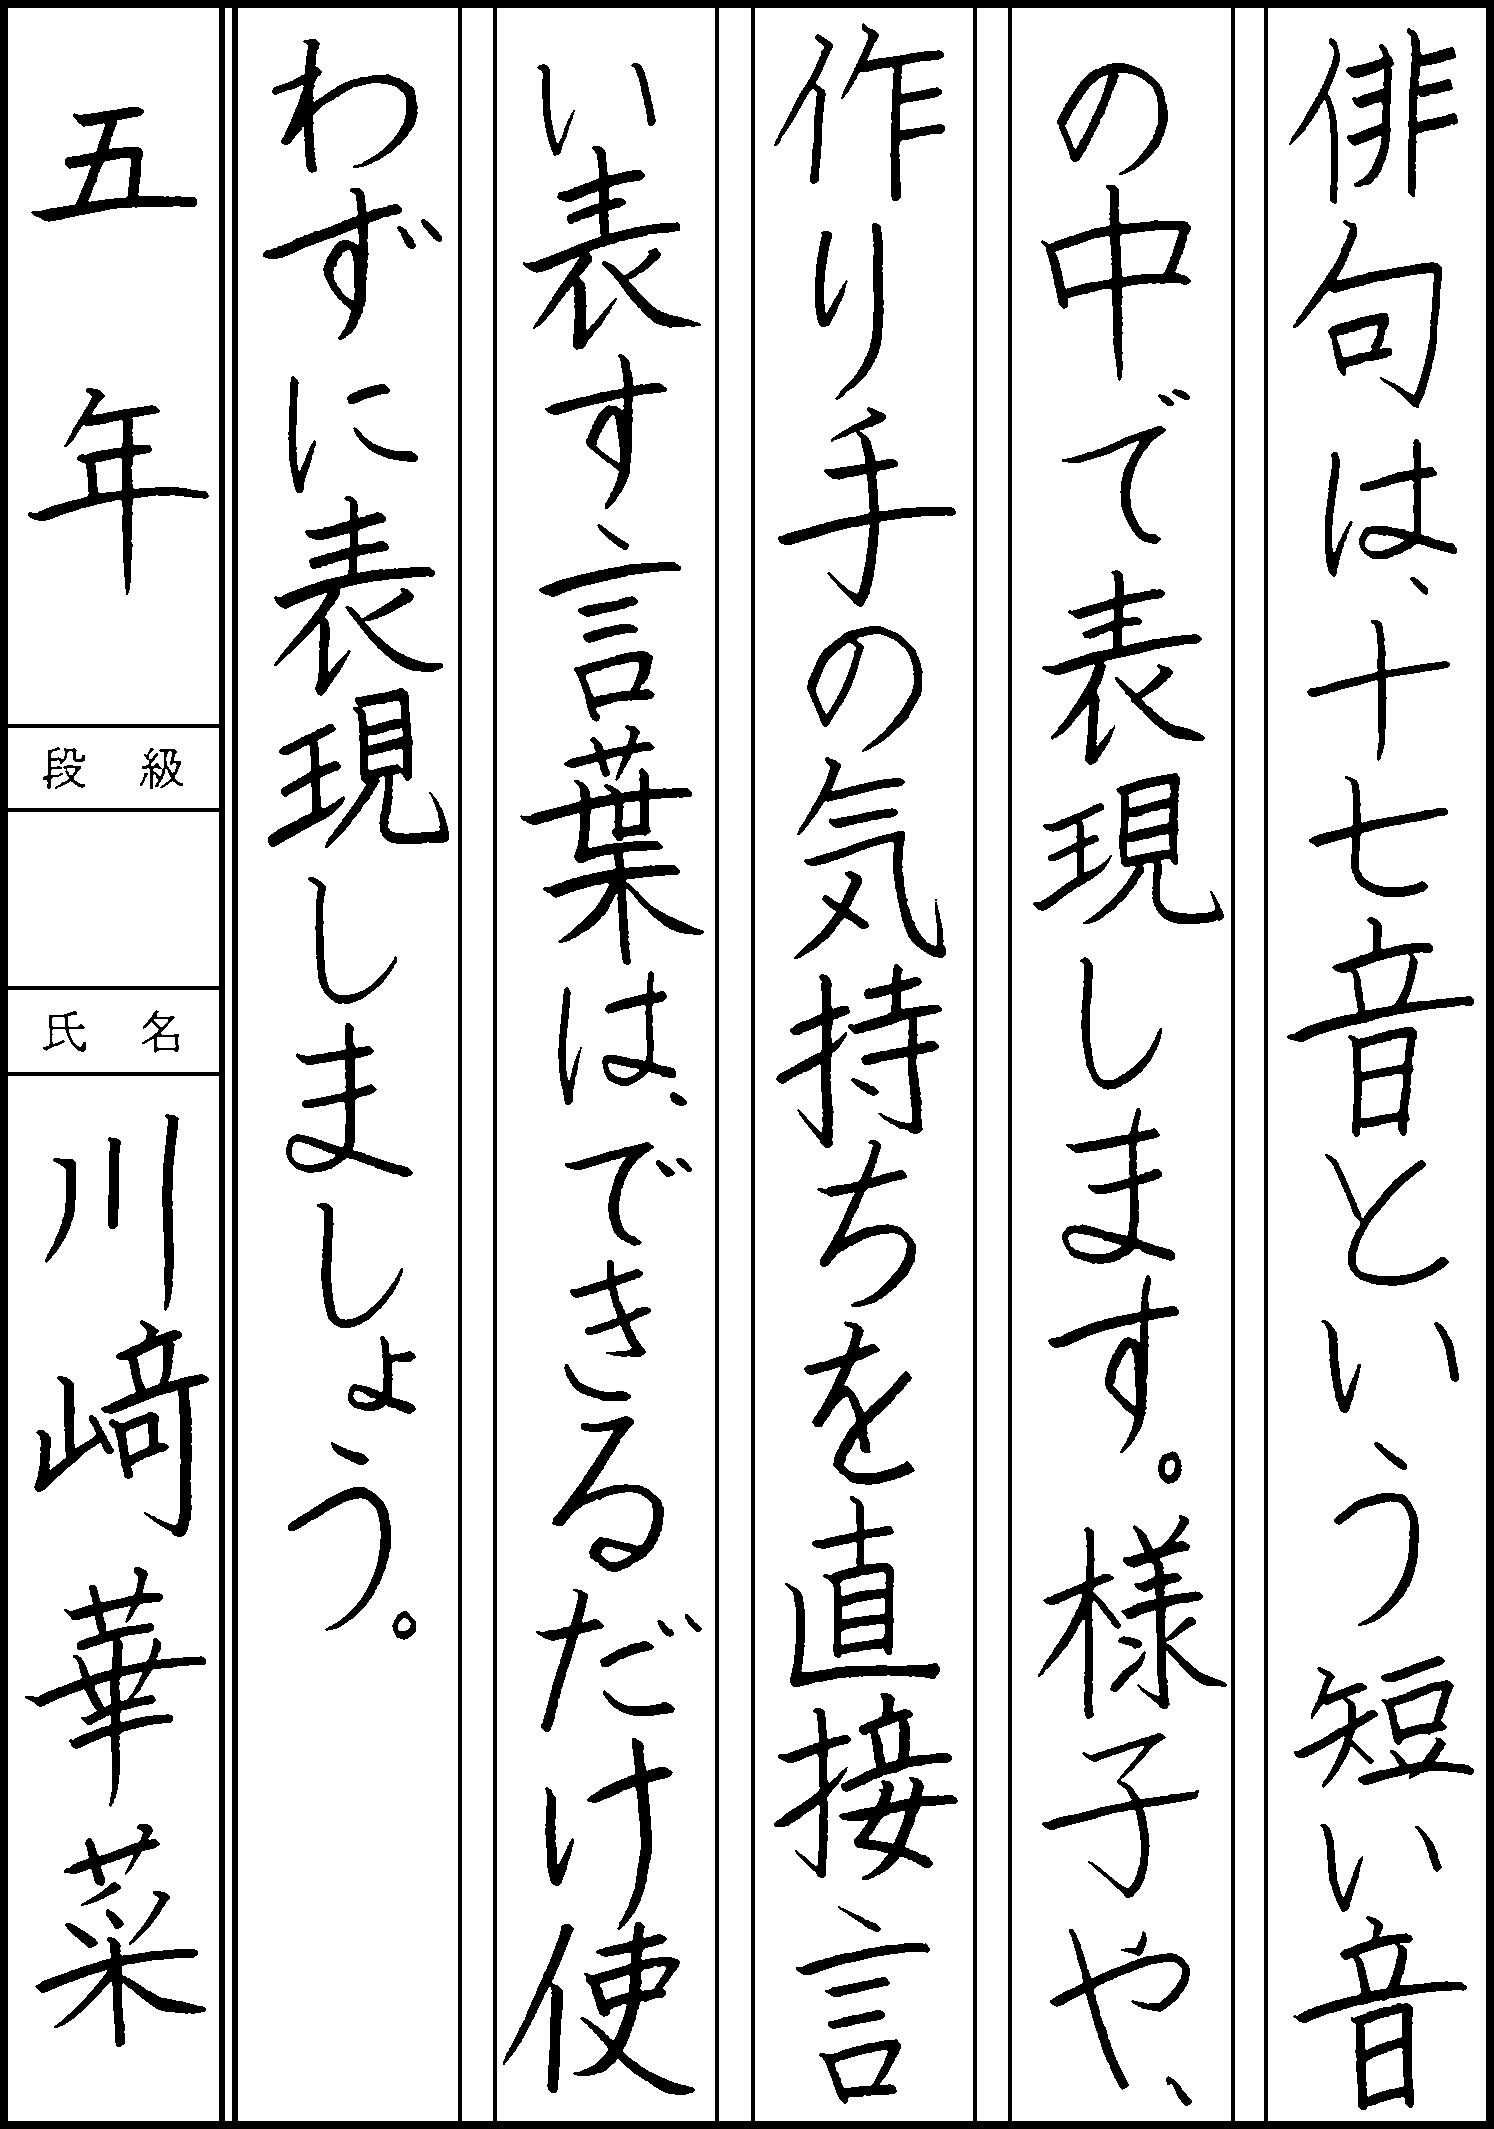 俳句は、十七音という短い音
の中で表現します。様子や、
作り手の気持ちを直接言
い表す言葉は、できるだけ使
わずに表現しましょう。
五年
段級
氏名
川﨑華菜